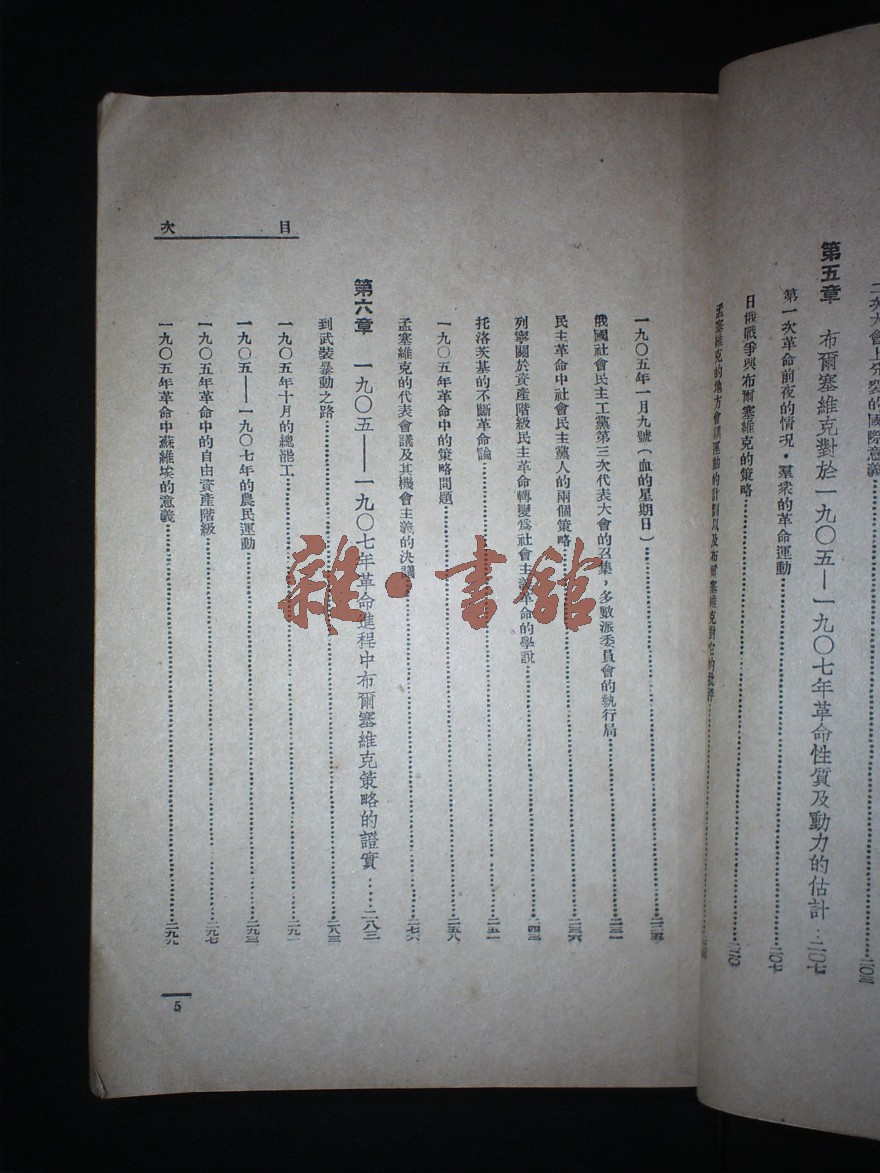 二次大會上分裂的國際意義……二〇三
第五章　布爾塞維克對於一九〇五—一九〇七年革命性質及動力的估計…二〇七
第一次革命前夜的情况・羣衆的革命運動……二〇七
日俄戰爭與布爾塞維克的策略……二一〇
孟塞維克的地方會議運動的計劃以及布爾塞維克對它的批評
目次
一九〇五年一月九號（血的星期日）……二二五
俄國社會民主工黨第三次代表大會的召集，多數派委員會的執行局……二三一
民主革命中社會民主黨人的兩個策略……二三六
列寧關於資產階級民主革命轉變爲社會主義革命的學說……二四三
托洛茨基的不斷革命論……二五一
一九〇五年革命中的策略問題……二五八
孟塞維克的代表會議及其機會主義的決議……二七六
第六章　一九〇五——一九〇七年革命進程中布爾塞維克策略的證實……二八三
到武裝暴動之路……二八三
一九〇五年十月的總罷工……二九一
一九〇五——一九〇七年的農民運動……二九三
一九〇五年革命中的自由資產階級……二九七
一九〇五年革命中蘇維埃的意義……二九九
5
雜・書館